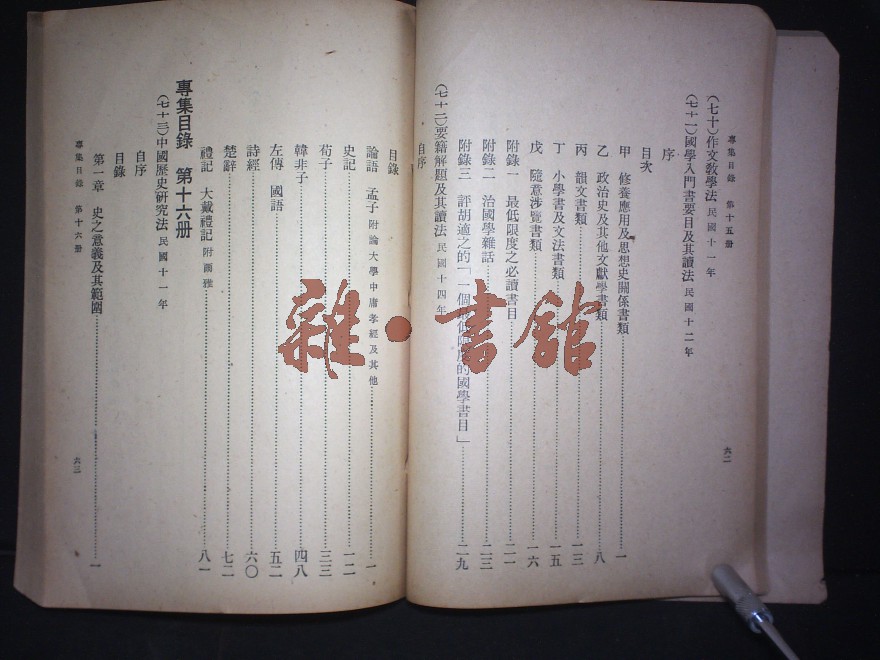 專集目錄 第十五册
六二
(七十)作文教學法 民國十一年
(七十一)國學入門書要目及其讀法 民國十二年
序
目次
甲 修養應用及思想史關係書類 一
乙 政治史及其他文獻學書類 八
丙 韻文書類 一三
丁 小學書及文法書類 一五
戊 隨意涉覽書類 一六
附錄一 最低限度之必讀書目 二一
附錄二 治國學雜話 二三
附錄三 評胡適之的「一個最低限度的國學書目」 二九
(七十二)要籍解題及其讀法 民國十四年
自序
目錄
論語 孟子 附論大學中庸孝經及其他 一
史記 一二
荀子 三三
韓非子 四八
左傳 國語 五二
詩經 六〇
楚辭 七二
禮記 大戴禮記 附爾雅 八一
專集目錄 第十六册
(七十三)中國歷史研究法 民國十一年
自序
目錄
第一章 史之意義及其範圍 一
專集目錄 第十六册
六三
雜·書館